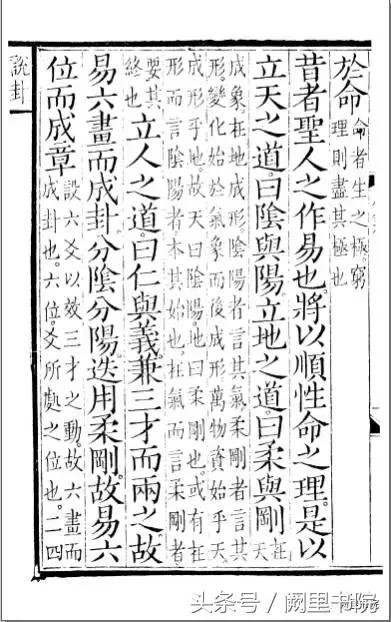 於命
命者生之極窮
理則盡其極也
昔者聖人之作易也。將以順性命之理。是以
立天之道。曰陰與陽。立地之道。曰柔與剛。
在
天
成象。在地成形。陰陽者言其氣。柔剛者言其
形。變化始於氣象而後成形。萬物資始乎天。
成形乎地。故天曰陰陽。地曰柔剛也。或有在
形而言陰陽者。本其始也。在氣而言柔剛者。
要其
終也
立人之道。曰仁與義。兼三才而兩之。故
易六畫而成卦。分陰分陽。迭用柔剛。故易六
位而成章
設六爻以效三才之動。故六畫而
成卦也。六位。爻所處之位也。二四
說卦
头条号 / 阙里书院